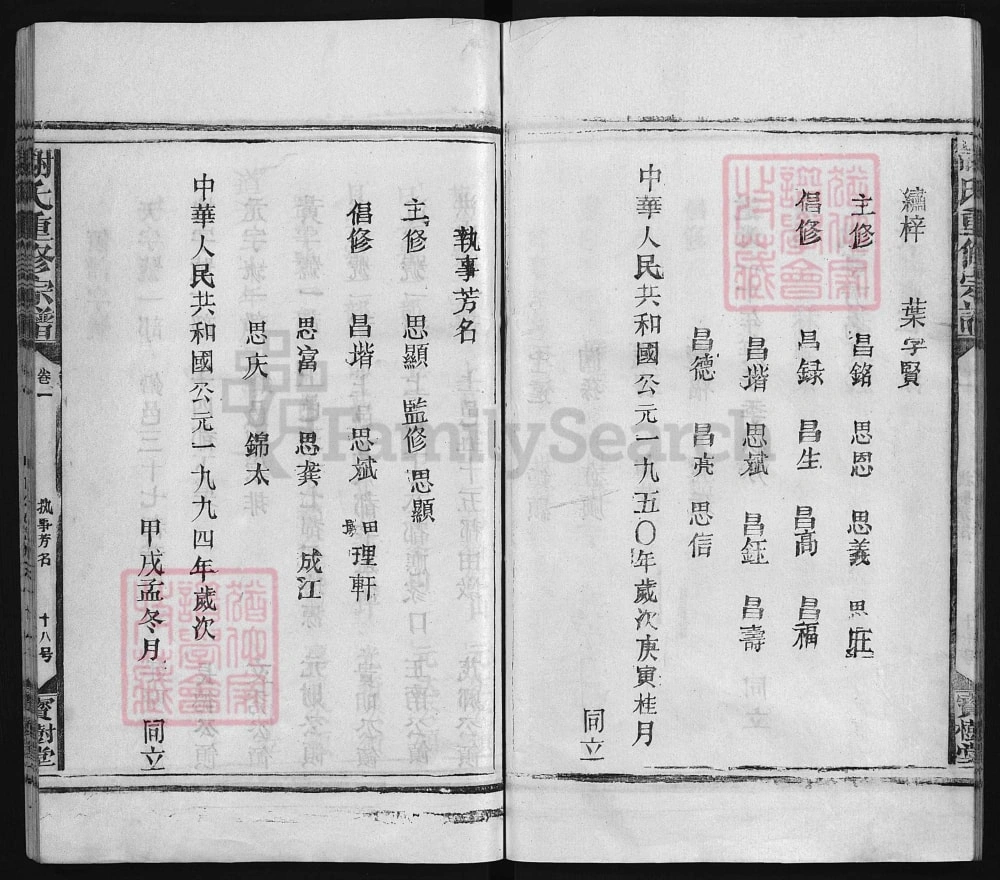 繡梓 葉字賢
主修 昌銘 思恩 思義 思莊
倡修 昌録 昌生 昌高 昌福
昌堦 思斌 昌鈺 昌壽
昌德 昌亮 思信
中華人民共和國公元一九五〇年歲次庚寅桂月
同立
執事芳名
主修 思顯 監修 思顯
倡修 昌堦 思斌 理軒
思富 思龔 成江
思庆 錦太
中華人民共和國公元一九九四年歲次
甲戌孟冬月
同立
謝氏重修宗譜 卷一 执事芳名 十八号 寳樹堂
FamilySearch